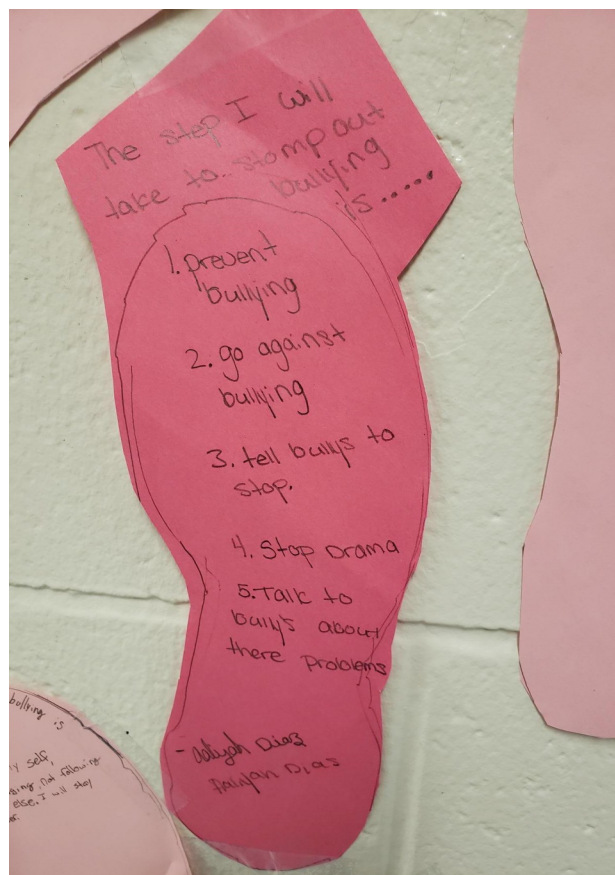 The step I will
take to.. stomp out
bullying
is.....
1. prevent
bullying
2. go against
bullying
3. tell bullys to
stop.
4. Stop Drama
5. Talk to
bullys about
there problems
- aaliyah Diaz
Dias
bullying is
y self,
not following
else, I will stay